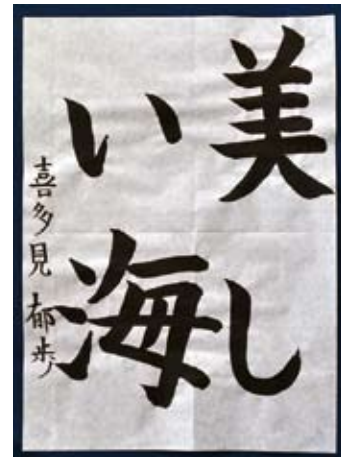 美し
い海
喜多見郁歩